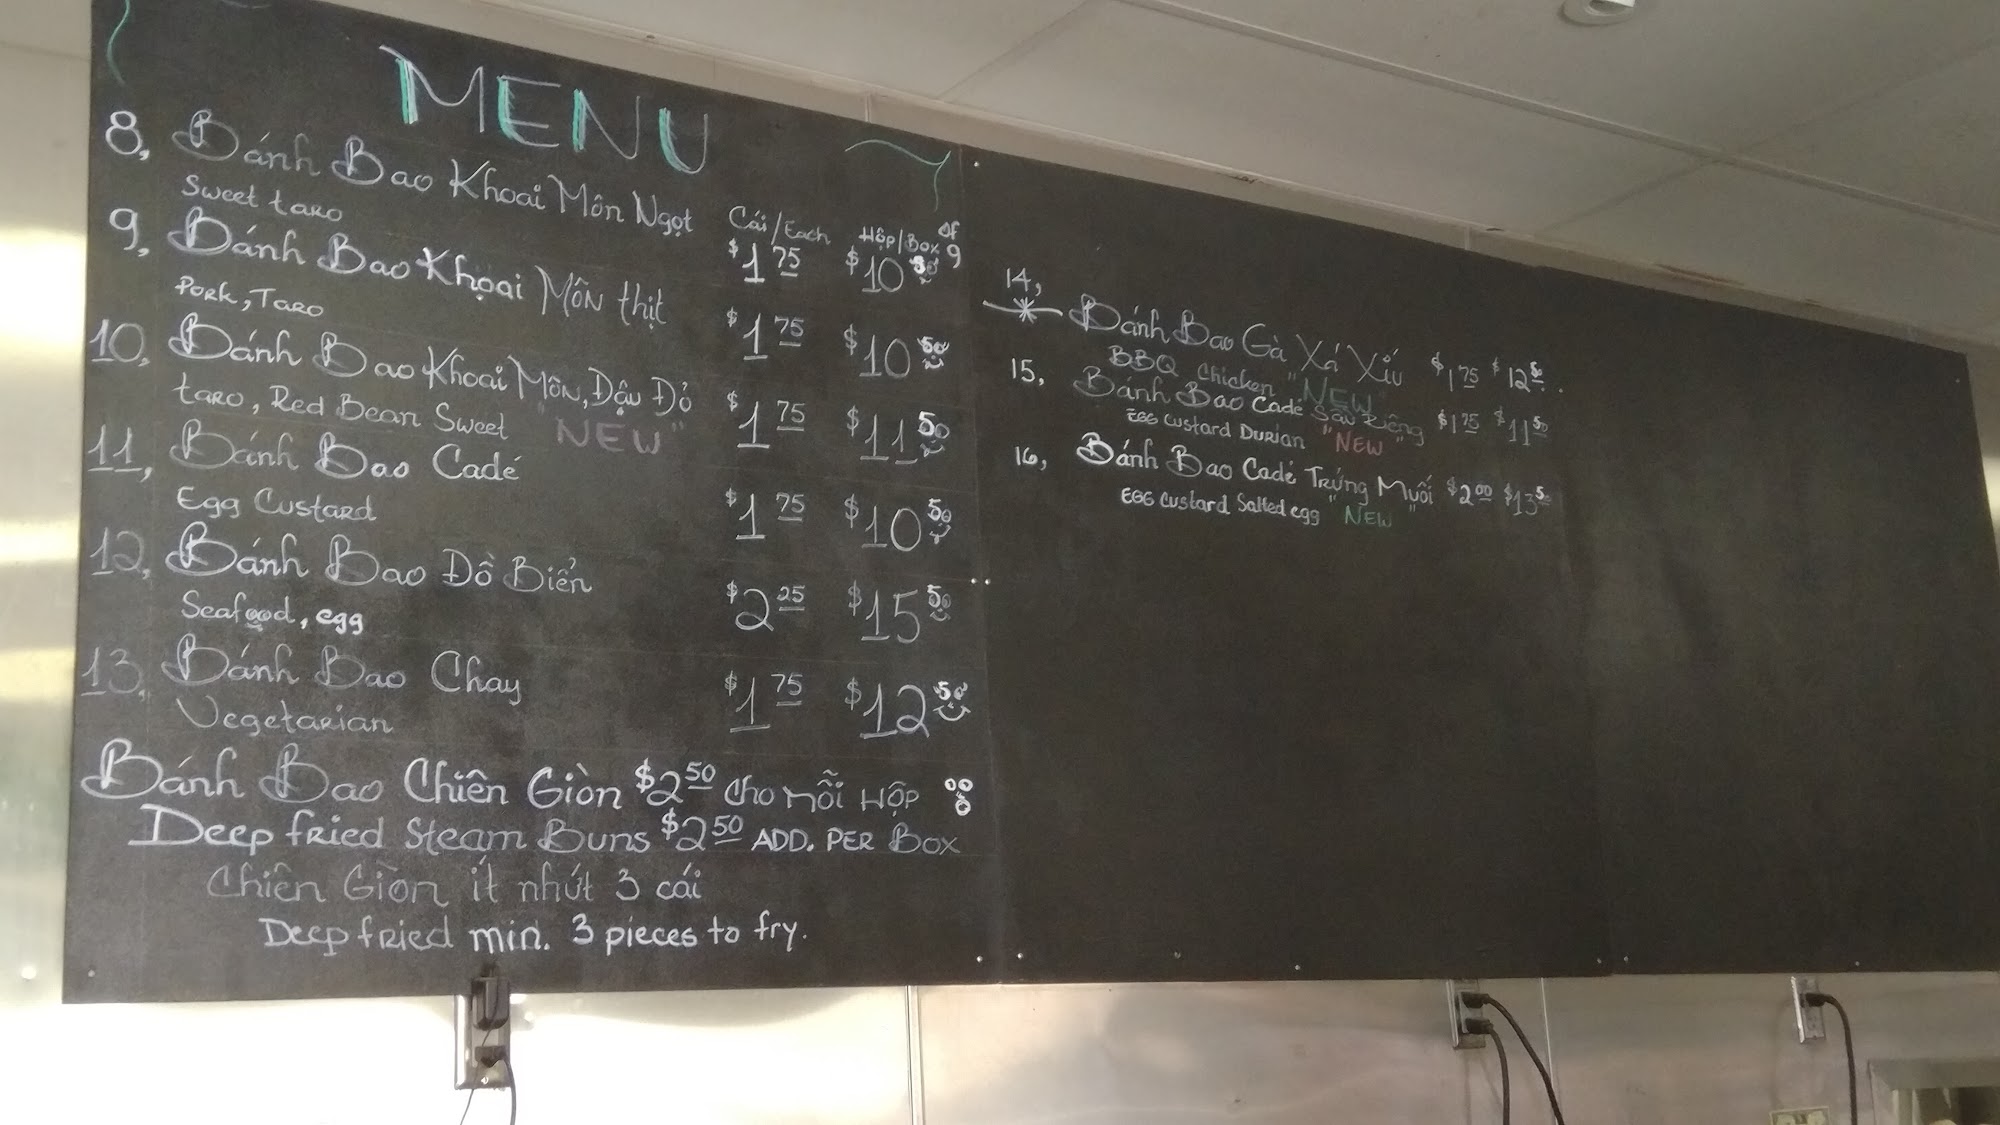 MENU
8, Bánh Bao Khoai Môn Ngọt
Sweet taro
Cái/Each Hộp/Box of 9
$1 75 $10 50
9, Bánh Bao Khoai Môn thịt
Pork, Taro
$1 75 $10 50
10, Bánh Bao Khoai Môn, Đậu Đỏ
taro, Red Bean Sweet "NEW"
$1 75 $11 50
11, Bánh Bao Cadé
Egg Custard
$1 75 $10 50
12, Bánh Bao Đồ Biển
Seafood, egg
$2 25 $15 50
13, Bánh Bao Chay
Vegetarian
$1 75 $12 50
Bánh Bao Chiên Giòn $2 50 cho mỗi Hộp
Deep fried Steam Buns $2 50 ADD. PER BOX
Chiên Giòn ít nhứt 3 cái
Deep fried min. 3 pieces to fry.
14, Bánh Bao Gà Xá Xíu $1 75 $12 50
BBQ Chicken "NEW"
15, Bánh Bao Cadé Sầu Riêng $1 75 $11 50
EGG Custard Durian "NEW"
16, Bánh Bao Cadé Trứng Muối $2 00 $13 50
EGG Custard Salted egg "NEW"